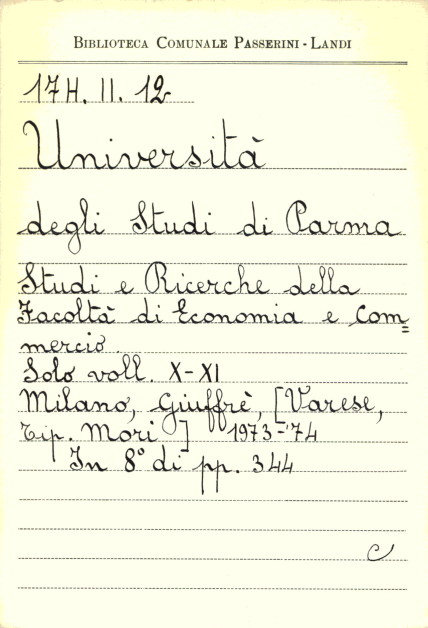 BIBLIOTECA COMUNALE PASSERINI - LANDI
17H. II. 12
Università
degli Studi di Parma
Studi e Ricerche della
Facoltà di Economia e Com=
mercio
Solo voll. X-XI
Milano, Giuffrè, [Varese,
Tip. Mori] 1973-'74
In 8° di pp. 344
C